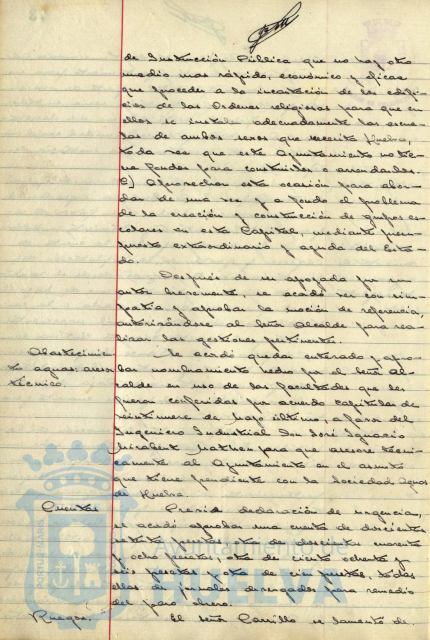 de Instrucción Pública que no hay otro
medio mas rápido, económico y eficaz
que proceder a la incautación de los edifi-
cios de las Ordenes religiosas para que en
ellos se instalen adecuadamente las escue-
las de ambos sexos que necesita Huelva,
toda vez que este Ayuntamiento no tie-
ne fondos para construirlos o arrendarlos.
Aprovechar esta ocasión para abor-
dar de una vez y a fondo el problema
de la creación y construcción de grupos es-
colares en esta Capital, mediante presu-
puesto extraordinario y ayuda del Esta-
do.
Después de ser apoyada por su
autor brevemente, se acordó ver con sim-
patía y aprobar la moción de referencia,
autorizándose al Señor Alcalde para rea-
lizar las gestiones pertinentes.
Abastecimien-
to aguas: asesor
técnico.
Se acordó quedar enterado y apro-
bar nombramiento hecho por el Señor Al-
calde en uso de las facultades que le
fueron conferidas por acuerdo capitular de
veintinueve de Mayo último, a favor del
Ingeniero Industrial Don José Ignacio
Mirabent para que asesore técni-
camente al Ayuntamiento en el asunto
que tiene pendiente con la Sociedad Aguas
de Huelva.
Cuentas
Previa declaración de urgencia,
se acordó aprobar una cuenta de doscientas
setenta pesetas, otra de doscientas cuarenta
y ocho pesetas, otra de ciento ochenta y
seis pesetas y otra de cien pesetas, todas
ellas de jornales devengados para remedio
del paro obrero.
Ruegos.
El señor Carrillo se lamentó de
HUELVA